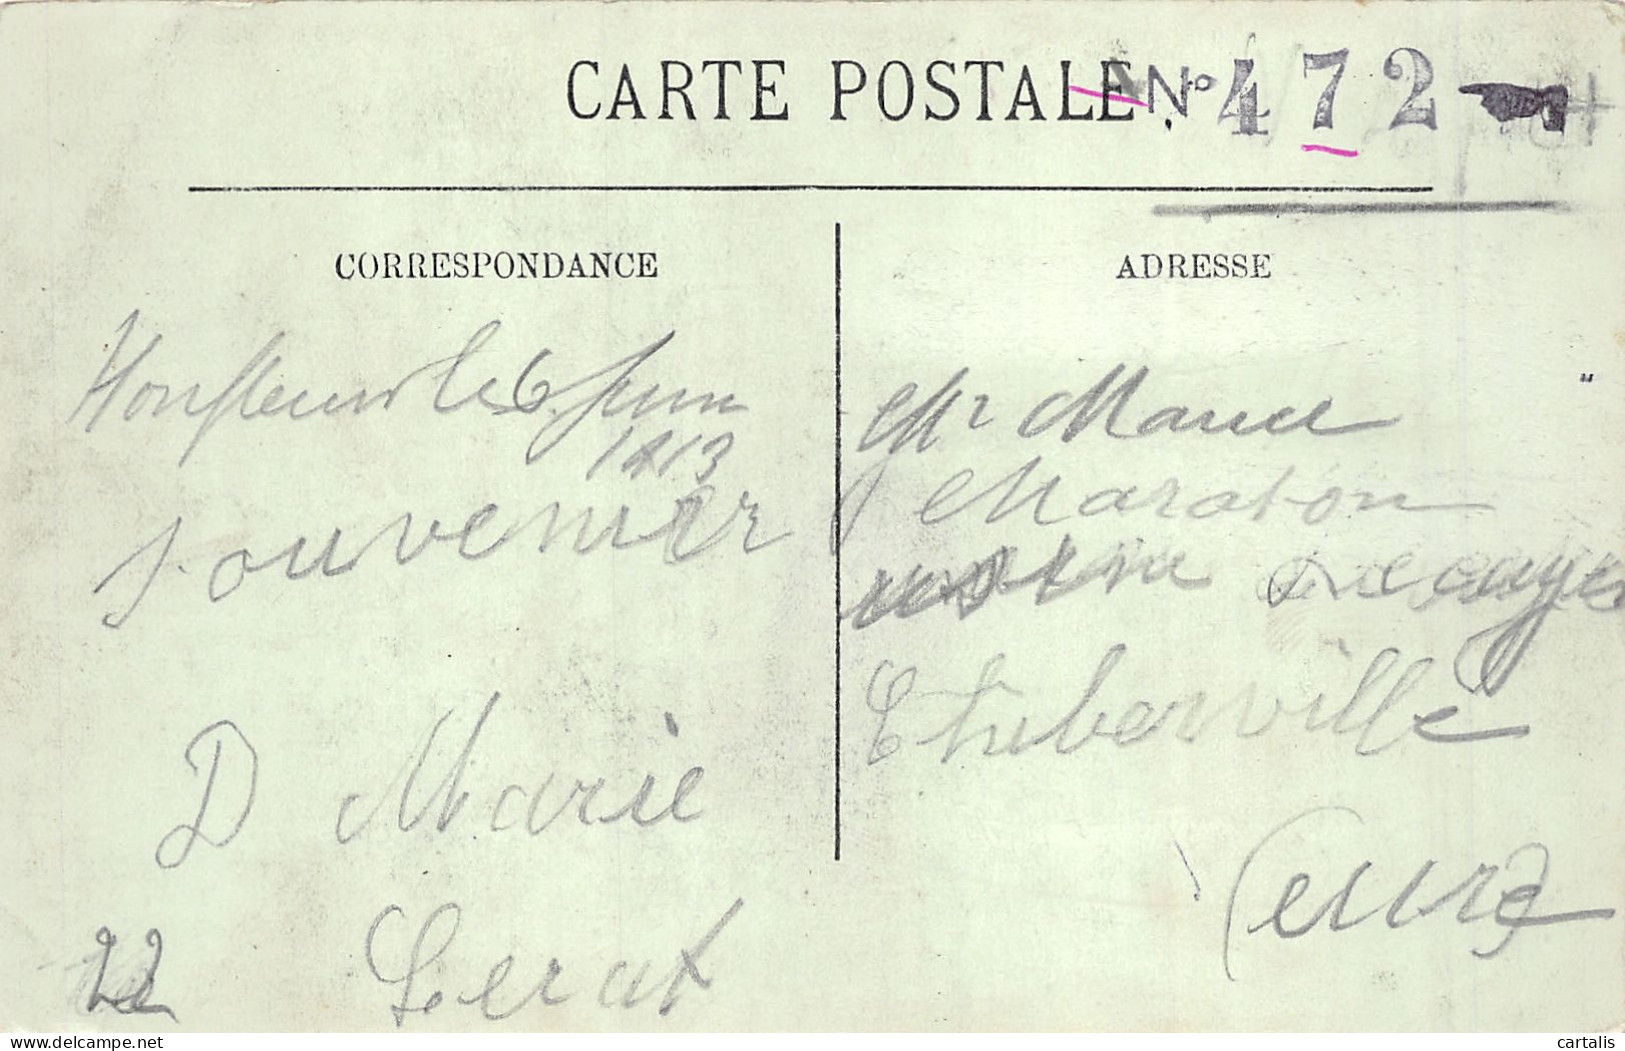 CARTE POSTALE N° 472
CORRESPONDANCE
Honfleur le 6 juin
1913
Souvenir
D Marie
Lerat
22
ADRESSE
Mr Marcel
Marabon
Thiberville
(eure)
delcampe.net
cartalis